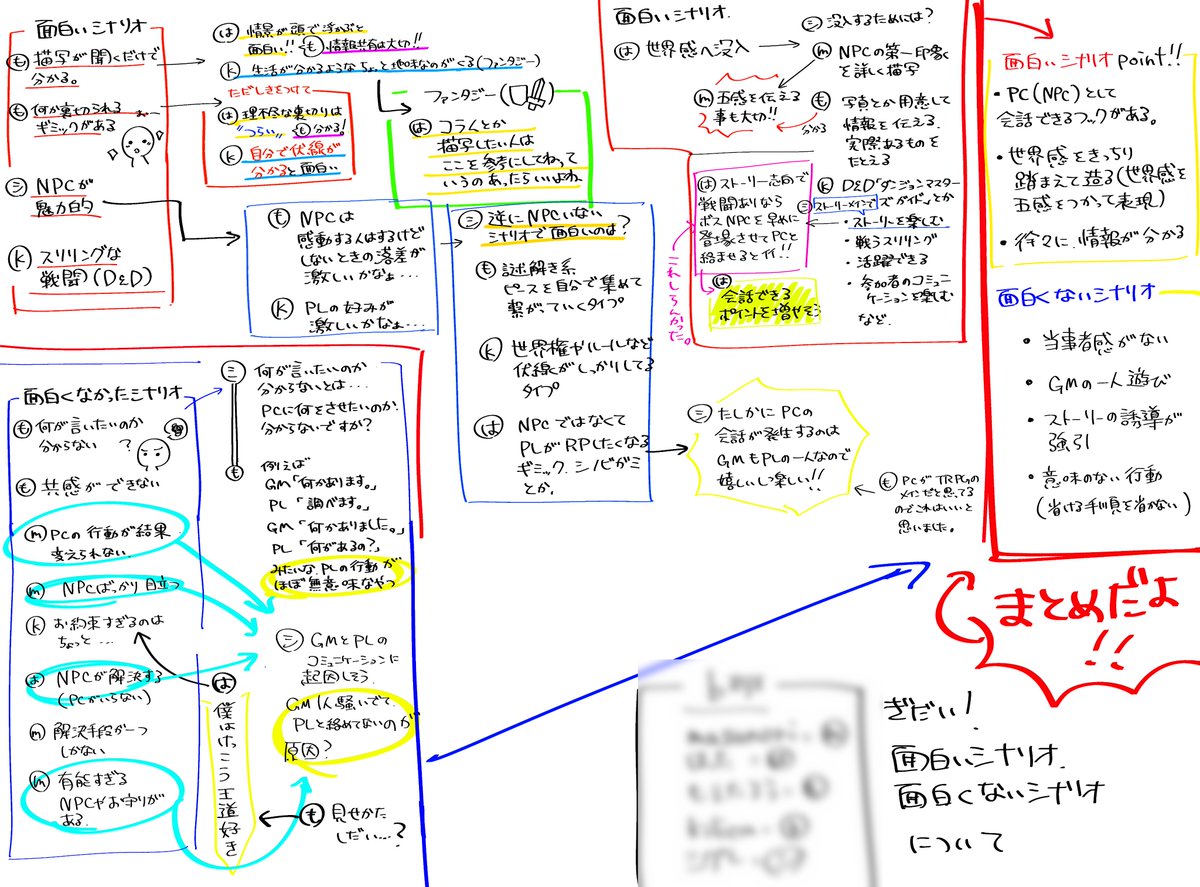 面白いシナリオ
も 描写が聞くだけで
分かる。
も 何が裏切られる
ギミックがある
シ NPCが
魅力的
k スリリングな
戦闘(D&D)
は 情景が頭で浮かぶと
面白い!! も 情報共有は大切!!
k 生活が分かるようなちょと地味なのがくる(ファンタジー)
ただしきをつけて
は 理不尽な裏切りは
"つらい" も 分かる!
k 自分で伏線が
分かると面白い
ファンタジー
は コラムとか
描写したい人は
ここを参考にしてねって
いうのあったらいいよね
も NPCは
感動する人はするけど
しないときの落差が
激しいかなぁ...
k PLの好みが
激しいかなぁ...
シ 逆にNPCいない
シナリオで面白いのは?
も 謎解き系
ピースを自分で集めて
繋がっていくタイプ
k 世界権やルールなど
伏線がしっかりしてる
タイプ
は NPCではなくて
PLがRPしたくなる
ギミック. シノビガミ
とか.
面白いシナリオ.
は 世界感へ没入
シ 没入するためには?
m NPCの第一印象
を詳しく描写
m 五感を伝える
事も大切!!
も 写真とか用意して
情報を伝える.
実際あるものを
たとえる
分かる
は ストーリー志向で
戦闘ありなら
ボスNPCを早めに
登場させてPCと
絡ませると行!!
は
会話できる
ポイントを増やそう
これしらんかった。
k D&D「ダンジョンマスター
ズガイド」とか
シ ストーリーメインで
・ストーリーを楽しむ
・戦うスリリング
・活躍できる
・参加者のコミュニ
ケーションを楽しむ
など.
シ たしかにPCの
会話が発生するのは
GMもPLの一人なので
嬉しいし楽しい!!
も PCがTRPGの
メインだと思ってる
のでこれはいいと
思いました。
面白いシナリオpoint!!
・PC(NPC)として
会話できるフックがある。
・世界感をきっちり
踏まえて造る(世界感を
五感をつかって表現)
・徐々に情報が分かる
面白くないシナリオ
・当事者感がない
・GMの一人遊び
・ストーリーの誘導が
強引
・意味のない行動
(省ける手順を省かない)
まとめだよ
!!
面白くなかったシナリオ
も 何が言いたいのか
分からない ?
も 共感ができない
m PCの行動が結果
変えられない.
m NPCばっかり目立つ
k お約束すぎるのは
ちょっと...
は NPCが解決する
(PCがいらない)
m 解決手段が一つ
しかない
m 有能すぎる
NPCやお守りが
ある.
シ 何が言いたいのか
分からないとは...
PCに何をさせたいのか.
分からないですか?
も 例えば
GM「何かあります。」
PL「調べます。」
GM「何かありました。」
PL「何があるの?」
みたいな、PLの行動が
ほぼ無意味なやつ
シ GMとPLの
コミュニケーションに
起因しそう.
GM1人騒いでて.
PLと絡めてないのが
原因?
は 僕はけっこう王道好き
も 見せかた
しだい...?
ぎだい!
面白いシナリオ.
面白くないシナリオ
について